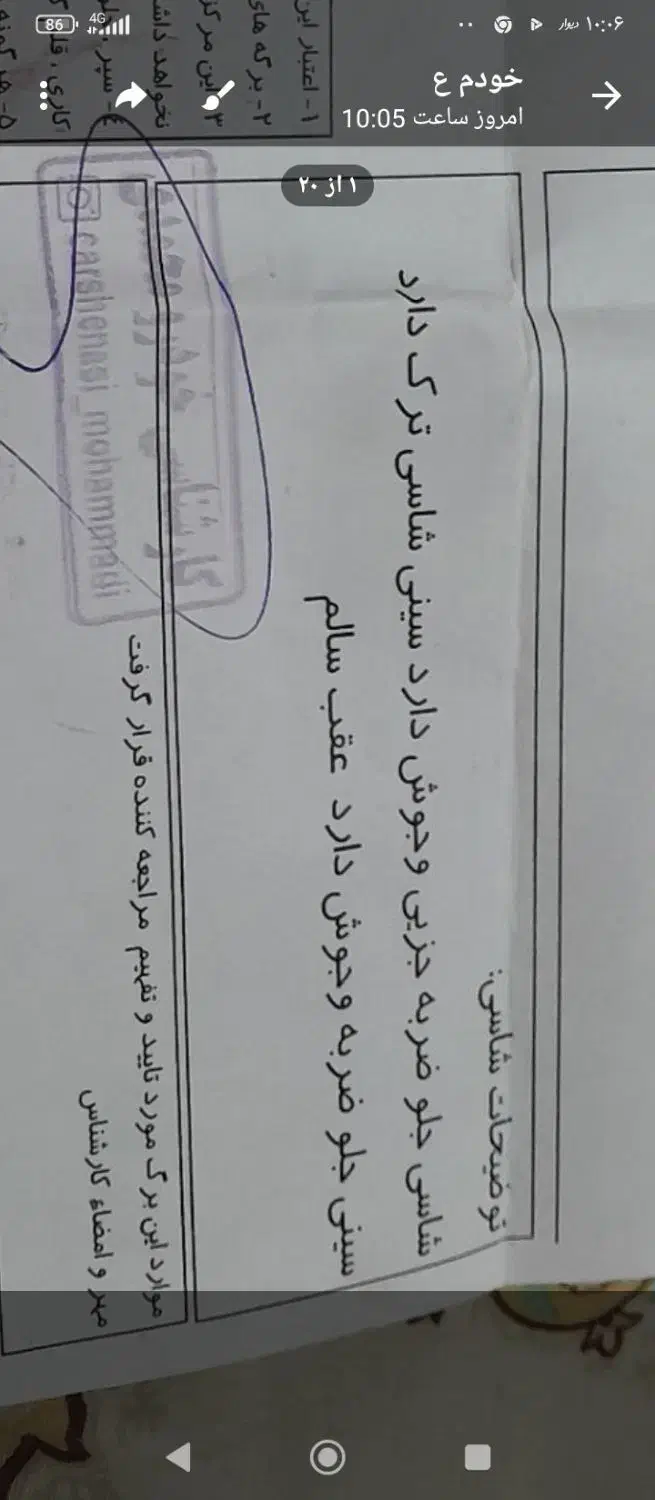 ۱۰:۰۶ دیوار
4G
86
خودم ع
امروز ساعت 10:05
۱ از ۲۰
۱- اعتبار این
۲- برگه های
۳- این مرکز
نخواهد داش
۴- سپر
کاری ، قل
۵- هر گونه
توضیحات شاسی:
شاسی جلو ضربه جزیی وجوش دارد سینی شاسی ترک دارد
سینی جلو ضربه وجوش دارد عقب سالم
موارد این برگ مورد تایید و تفهیم مراجعه کننده قرار گرفت
مهر و امضاء کارشناس
کارشناسی خودرو محمدی
carshenasi_mohammadi